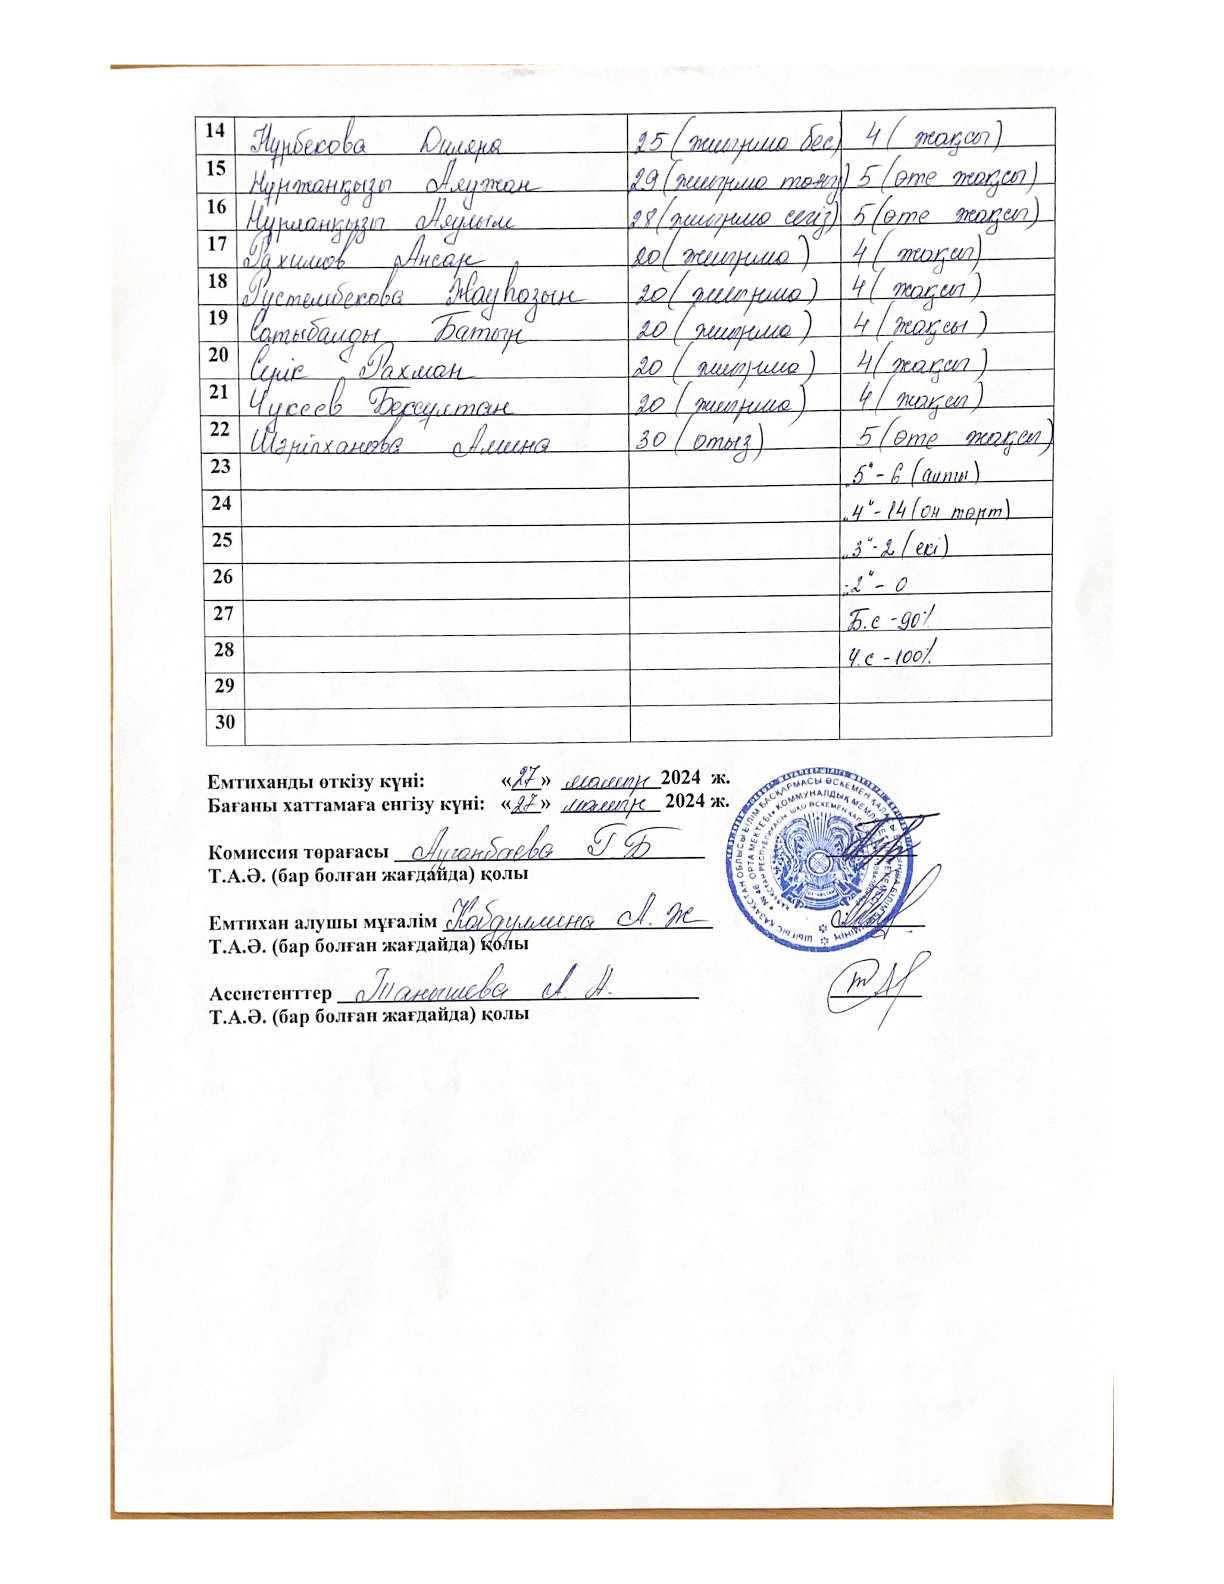 14 Нұрбекова Диляра 25 (жиырма бес) 4 ( жақсы)
15 Нұржанқызы Аяужан 29 (жиырма тоғыз) 5 (өте жақсы)
16 Нұрланқызы Аяулым 28 (жиырма сегіз) 5 (өте жақсы)
17 Рахимов Ансар 20 ( жиырма ) 4 ( жақсы)
18 Рүстембекова Жауһазын 20 ( жиырма) 4 ( жақсы)
19 Сатыбалды Батыр 20 ( жиырма ) 4 ( жақсы )
20 Серік Рахман 20 ( жиырма) 4 ( жақсы)
21 Чукеев Бексұлтан 20 ( жиырма) 4 ( жақсы)
22 Шәріпханова Амина 30 ( отыз) 5 (өте жақсы)
23 „5“ - 6 (алты)
24 „4“ - 14 (он төрт)
25 „3“ - 2 (екі)
26 „2“ - 0
27 Б.с - 90%
28 Ү.с - 100%
29
30
Емтиханды өткізу күні: «27» мамыр 2024 ж.
Бағаны хаттамаға енгізу күні: «27» мамыр 2024 ж.
Комиссия төрағасы Ауганбаева Г Б
Т.А.Ә. (бар болған жағдайда) қолы
Емтихан алушы мұғалім Кабдуллина А. Ж
Т.А.Ә. (бар болған жағдайда) қолы
Ассистенттер Танышева А. А.
Т.А.Ә. (бар болған жағдайда) қолы